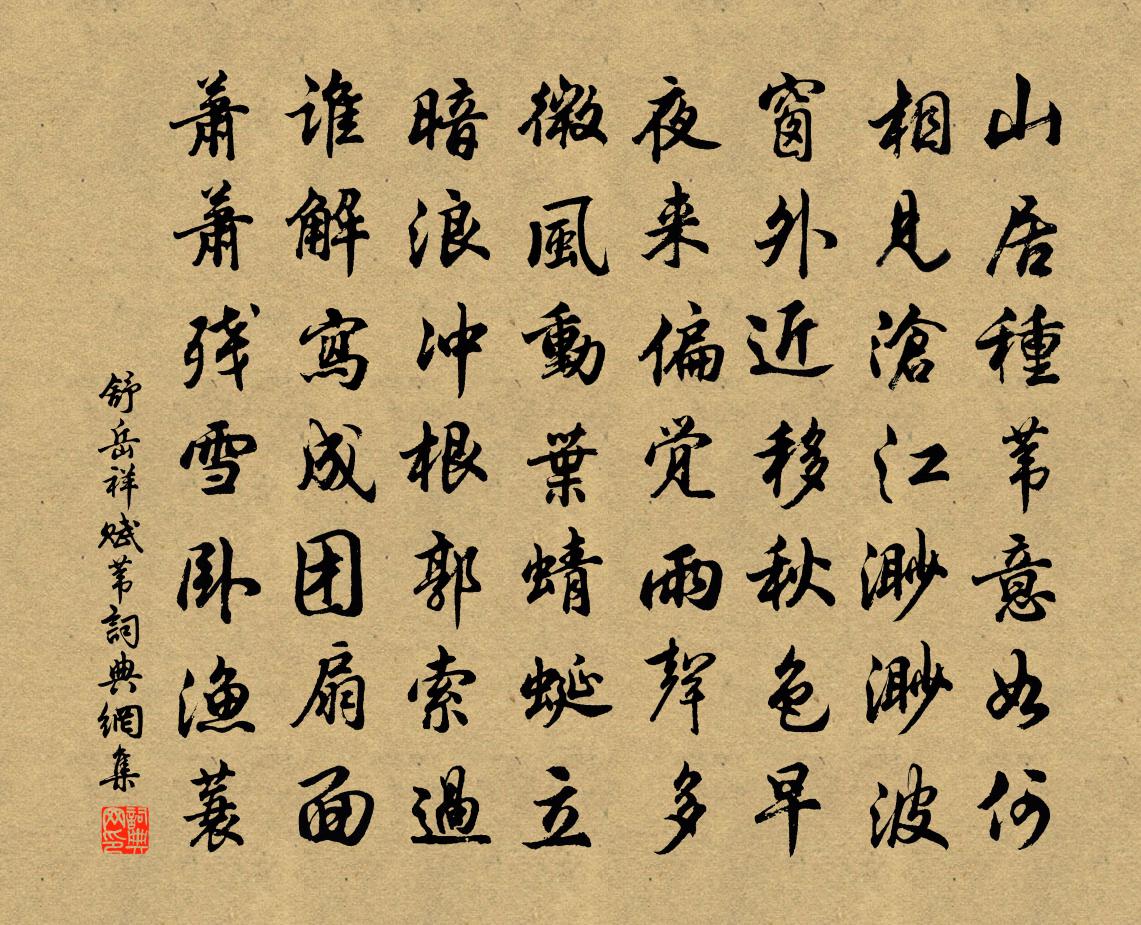 山居種苇意如何
相見滄江渺渺波
窗外近移秋色早
夜来偏覺雨聲多
微風動葉蜻蜓立
暗浪冲根郭索過
谁解寫成团扇面
萧萧残雪卧漁蓑
舒岳祥赋苇詞典網集
詞典网印